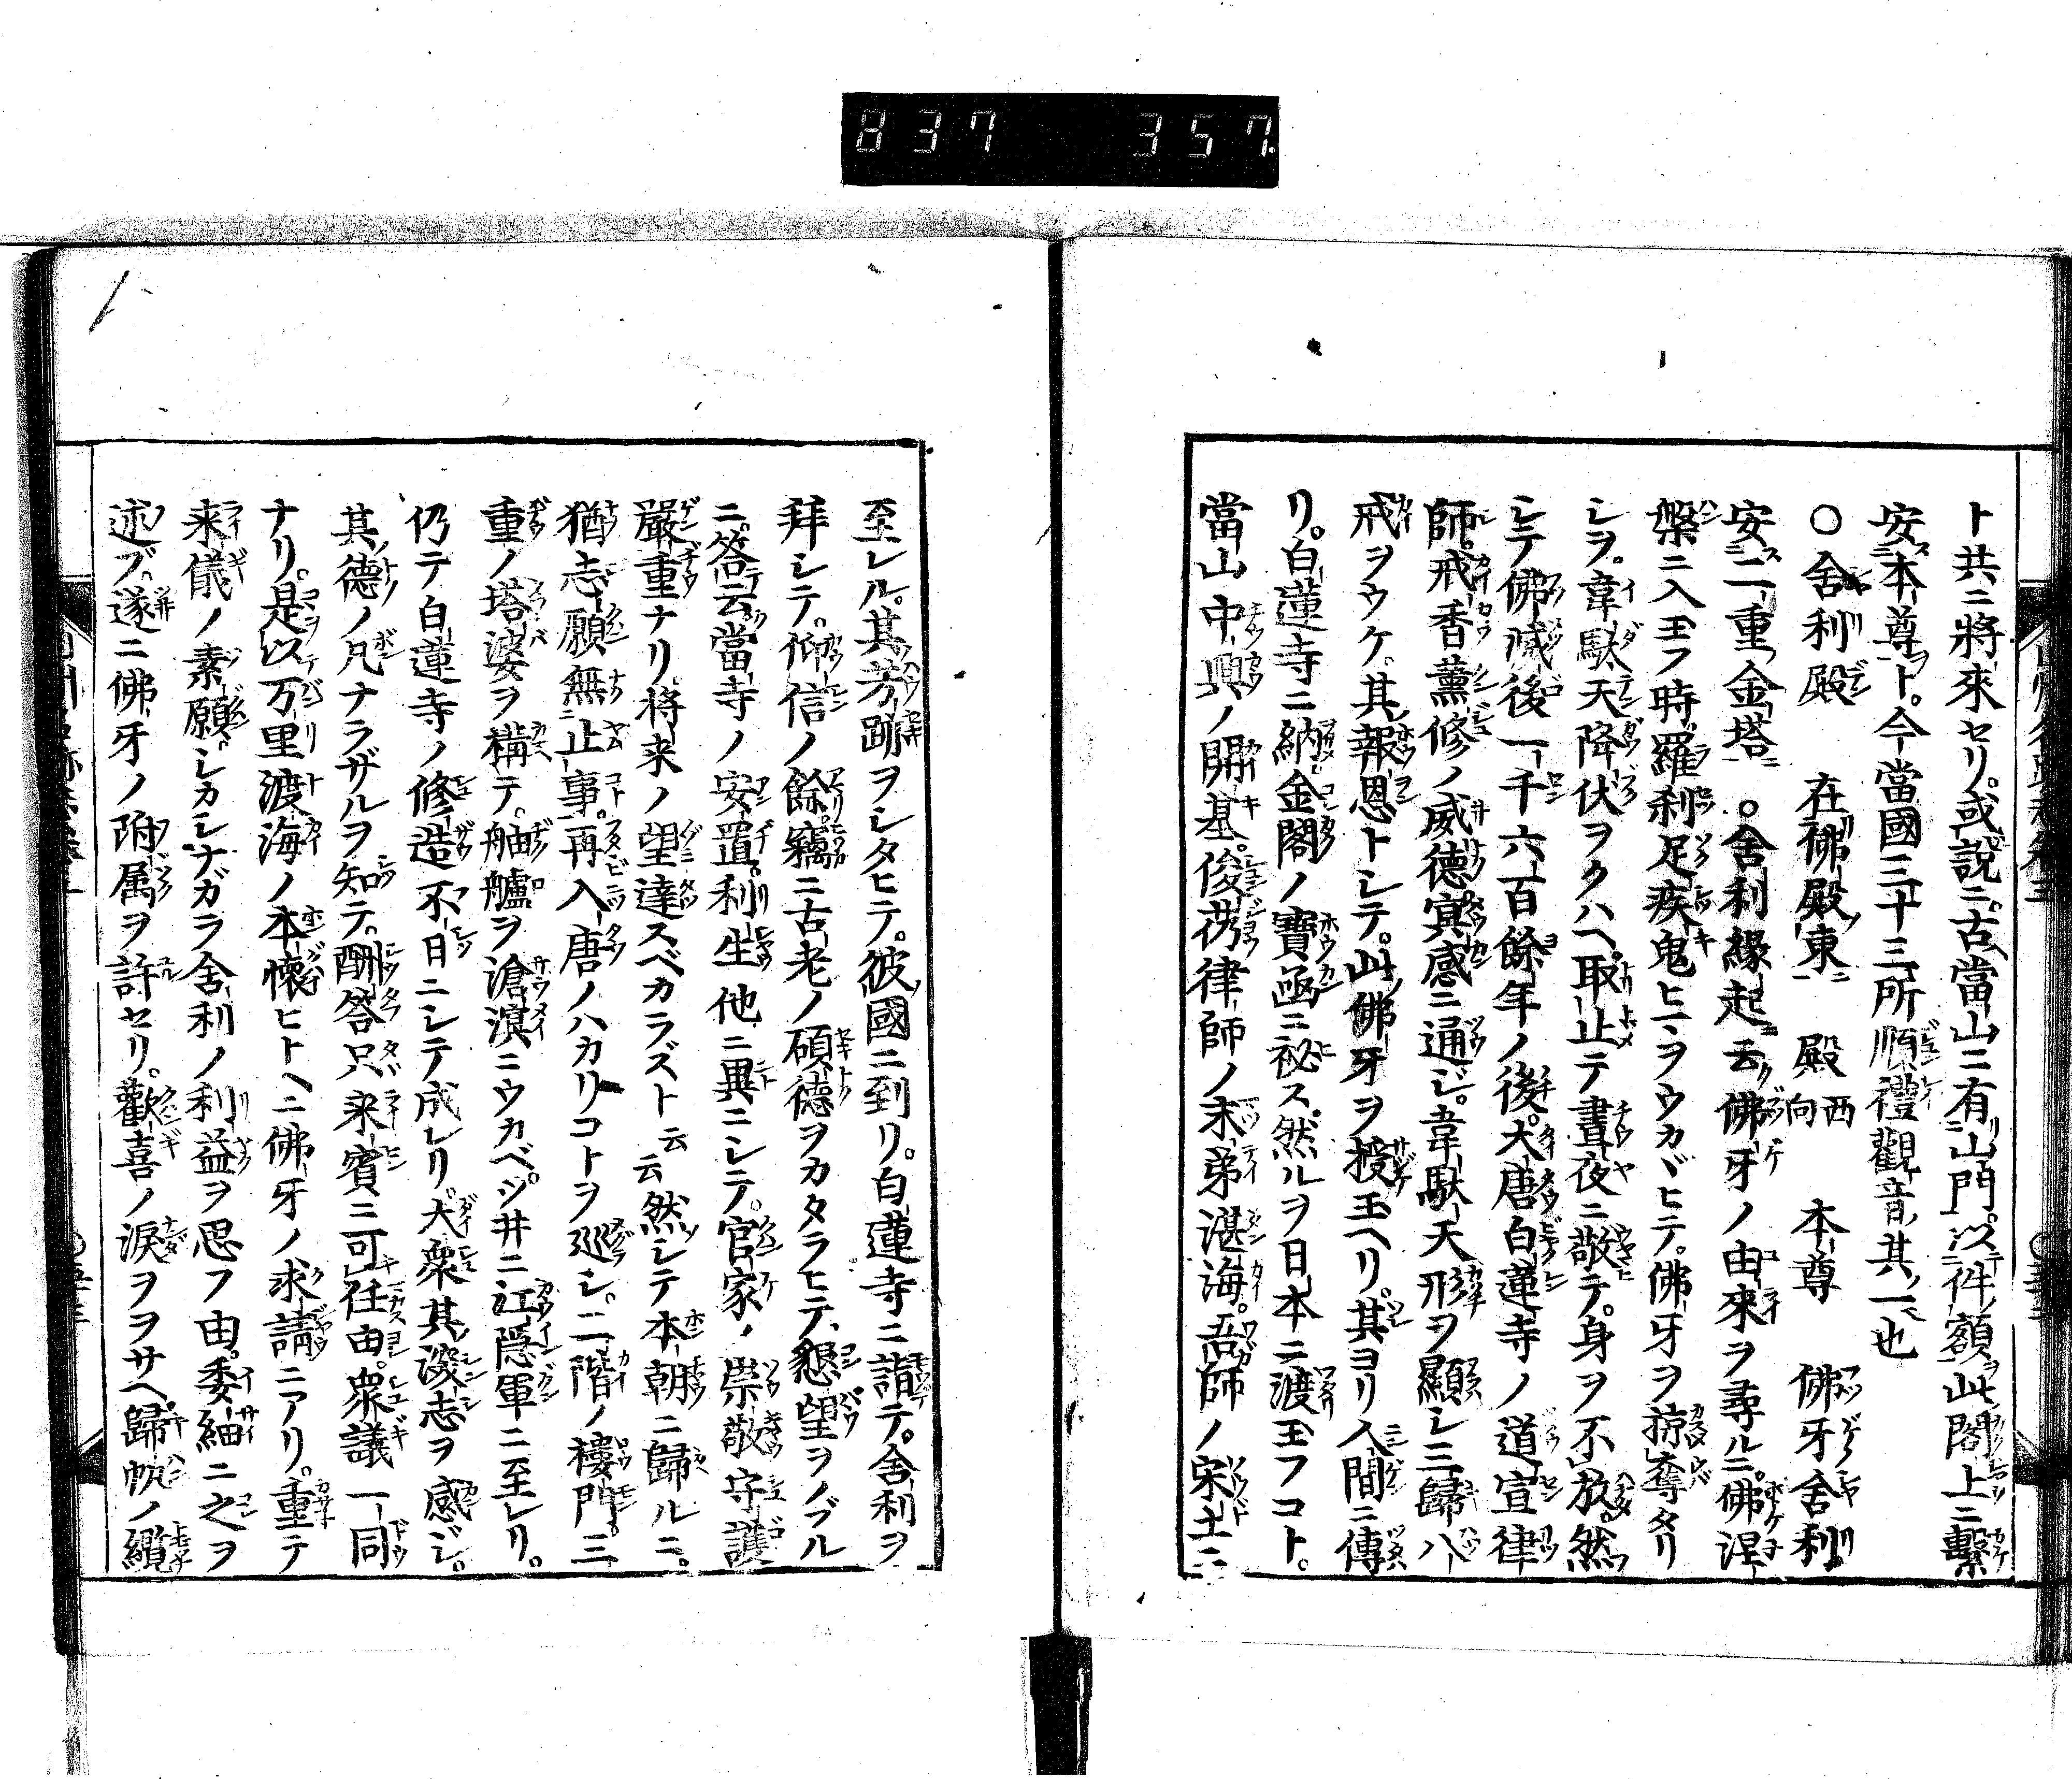 837 357
ト共ニ將來セリ。或説ニ。古當山ニ有山門。以件額此閣上ニ繫
安本尊ト。今當國三十三所順禮觀音其一也
○舍利殿 在佛殿東 殿西向 本尊 佛牙舍利
安二重金塔 ○舍利緣起云佛牙ノ由來ヲ尋ルニ。佛涅
槃ニ入玉フ時。羅刹足疾鬼ヒニヲウカヾヒテ。佛牙ヲ掠奪タリ
シヲ。韋駄天降伏ヲクハヘ。取止テ晝夜ニ敬テ。身ヲ不放。然
シテ佛滅後一千六百餘年ノ後。大唐白蓮寺ノ道宣律
師。戒香薰修ノ威德冥感ニ通ジ。韋駄天形ヲ顯シ三歸八
戒ヲウケ。其報恩トシテ。此佛牙ヲ授玉ヘリ。其ヨリ人間ニ傳
リ。白蓮寺ニ納金閣ノ寶函ニ祕ス。然ルヲ日本ニ渡玉フコト。
當山中興ノ開基。俊芿律師ノ末弟湛海。吾師ノ宋土ニ
至レル。其芳跡ヲシタヒテ。彼國ニ到リ。白蓮寺ニ詣テ。舍利ヲ
拜シテ。仰信ノ餘。竊ニ古老ノ碩德ヲカタラヒテ、懇望ヲノブル
ニ。答云當寺ノ安置。利生他ニ異ニシテ。官家ノ崇敬守護
嚴重ナリ。將来ノ望達スベカラズト云云然シテ本朝ニ歸ルニ。
猶志願無止事。再入唐ノハカリコトヲ巡シ。二階ノ樓門。三
重ノ塔婆ヲ構テ。舳艫ヲ滄溟ニウカベ。ツ井ニ江隠軍ニ至レリ。
仍テ白蓮寺ノ修造不日ニシテ成レリ。大衆其深志ヲ感ジ。
其德ノ凡ナラザルヲ知テ。酬答只来賓ニ可任由。衆議一同
ナリ。是以万里渡海ノ本懷ヒトヘニ佛牙ノ求請ニアリ。重テ
来儀ノ素願。シカシナガラ舍利ノ利益ヲ思フ由。委細ニ之ヲ
述ブ。遂ニ佛牙ノ附属ヲ許セリ。歡喜ノ淚ヲヲサヘ。歸帆ノ纜